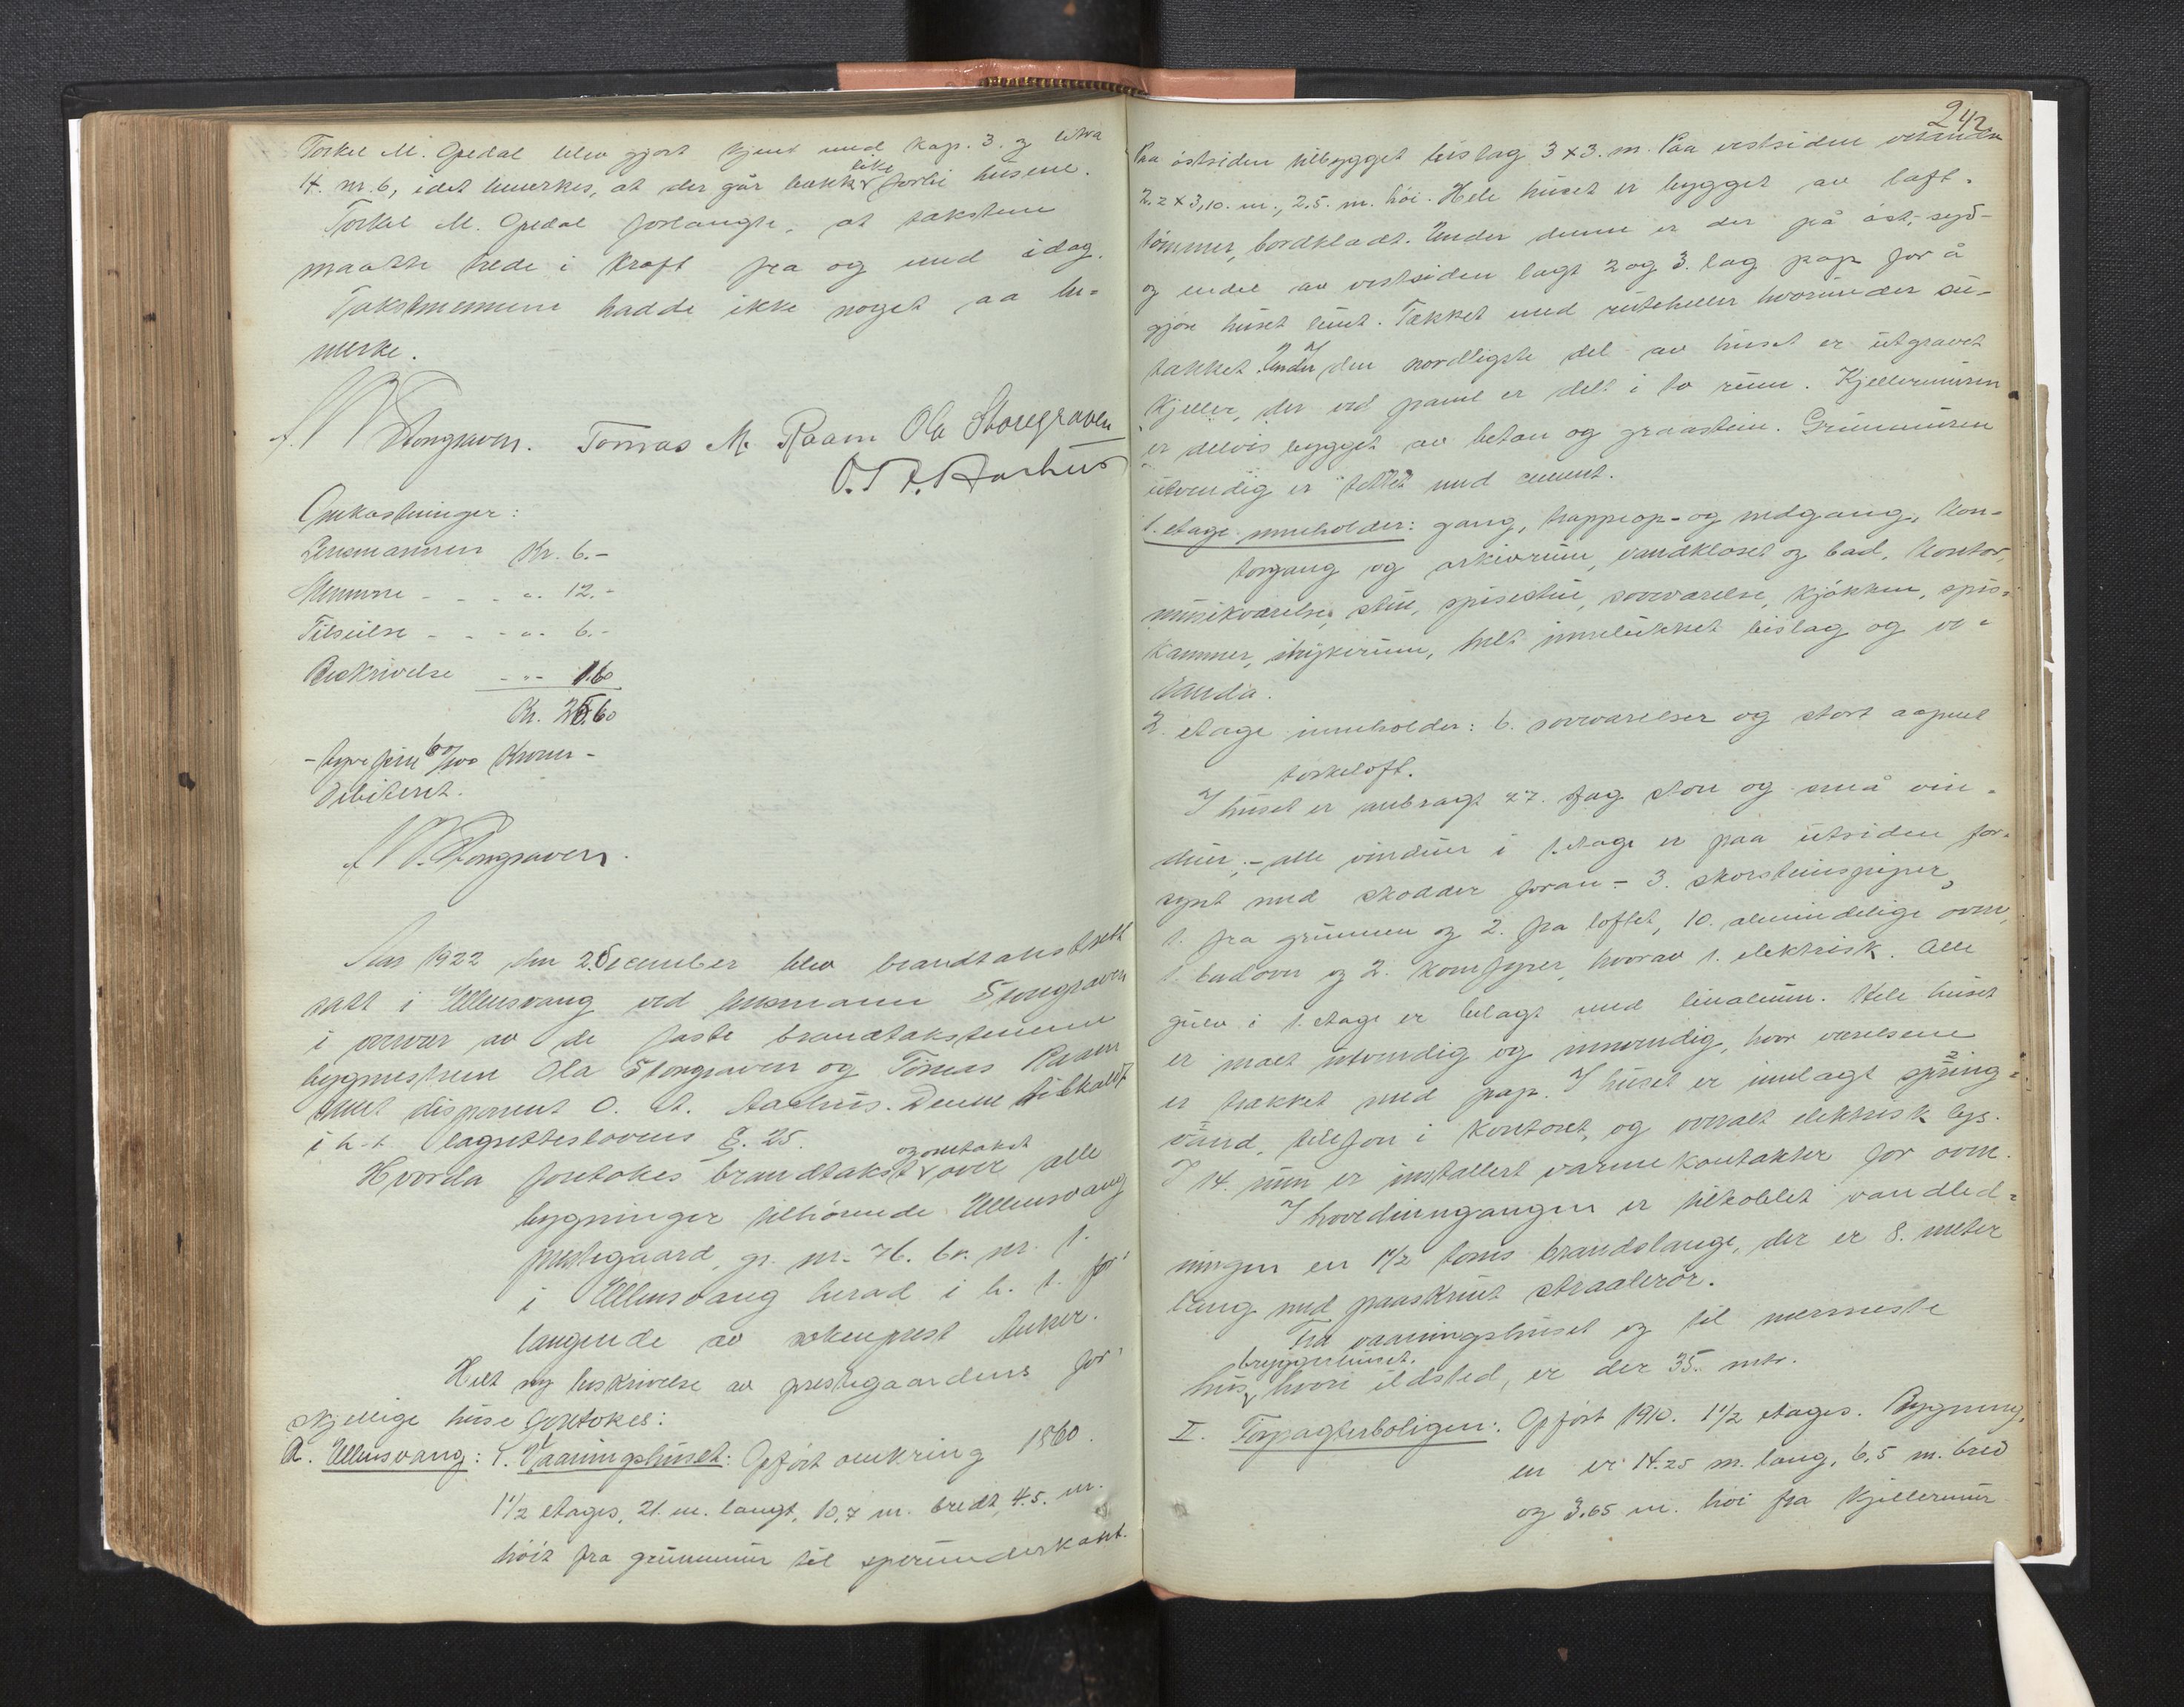 Torkel M. Opedal blev gjort kjent med kap. 3. og litra
H. nr. 6, idet bemerkes, at der går bækk like forbi husene.
Torkel M. Opedal forlangte, at takstene
maatte trede i kraft fra og med idag.
Takstmennene hadde ikke noget aa be-
merke.
Storegraven. Tomas M. Raaen Ola Storegraven
O. T. A. Aarhus
Omkostninger:
Lensmannen Kr. 6.-
Mennene - - - „ 12.-
Tilseilse - - - „ 6.-
Beskrivelse - „ - 1.60
Kr. 25.60
- tyvefem 60/100 Kroner -
Debiteret.
Storegraven.
Aar 1922 den 2 december blev brandtakstrett
satt i Ullensvang ved lensmann Storegraven
i overvær av de faste brandtakstmenn
bygmestrene Ola Storegraven og Tomas Raaen
samt disponent O. A. Aarhus. Denne tilkaldt
i h. t. lagrettelovens §. 25.
Hvorda foretokes brandtakst og omtakst over alle
bygninger tilhørende Ullensvang
prestegaard, gr. nr. 76. br. nr. 1.
i Ullensvang herad i h. t. for-
langende av sokneprest Anker.
Helt ny beskrivelse av prestegaardens for-
skjellige huse foretokes:
A. Ullensvang: I. Vaaningshuset: Opført omkring 1860.
1 1/2 etages, 21. m. langt, 10,7 m. bredt, 4.5. m.
høit fra grunnmur til sperrunderkant.
242
Paa østsiden tilbygget bislag 3 x 3. m. Paa vestsiden veranda
2.2 x 3,10. m., 2,5. m. høi. Hele huset er bygget av laft-
tømmer, bordklædt. Under denne er der på øst-, syd-
og endel av vestsiden lagt 2 og 3. lag pap for å
gjøre huset lunt. Tækket med ruteheller hvorunder su-
takket. Under den nordligste del av huset er utgravet
kjeller, der ved panel er delt i to rum. Kjellermuren
er delvis bygget av betan og graastein. Grunnmuren
utvendig er tettet med cement.
1. etage inneholder: gang, trappeop- og nedgang, kon-
torgang og arkivrum, vandkloset og bad, kontor,
musikværelse, stue, spisestue, soveværelse, kjøkken, spis-
kammer, strykerum, helt innelukket bislag og ve-
randa.
2. etage inneholder: 6. soveværelser og stort aapent
tørkeloft.
I huset er anbragt 27. fag store og små vin-
duer, - alle vinduer i 1. etage er paa utsiden for-
synt med skodder foran - 3. skorsteinspiper,
1. fra grunnen og 2. fra loftet, 10. alminnelige ovner,
1. badeovn og 2. komfyrer, hvorav 1. elektrisk. Alle
gulv i 1. etage er belagt med linoleum. Hele huset
er malt utvendig og innvendig, hvor værelsene
er trækket med pap. I huset er innlagt spring-
vand, telefon i kontoret, og overalt elektrisk lys.
I 14. rum er installert varmekontakter for ovn.
I hovedinngangen er tilkoblet vandled-
ningen en 1 1/2 toms brandslange, der er 8. meter
lang med paaskrudt straalerør.
Fra vaaningshuset og til nærmeste
hus, bryggerhuset, hvori ildsted, er der 35. mtr.
II. Forpagterboligen: Opført 1910. 1 1/2 etages. Bygning-
en er 14.25 m. lang, 6,5 m. bred
og 3,65 m. høi fra kjellermur